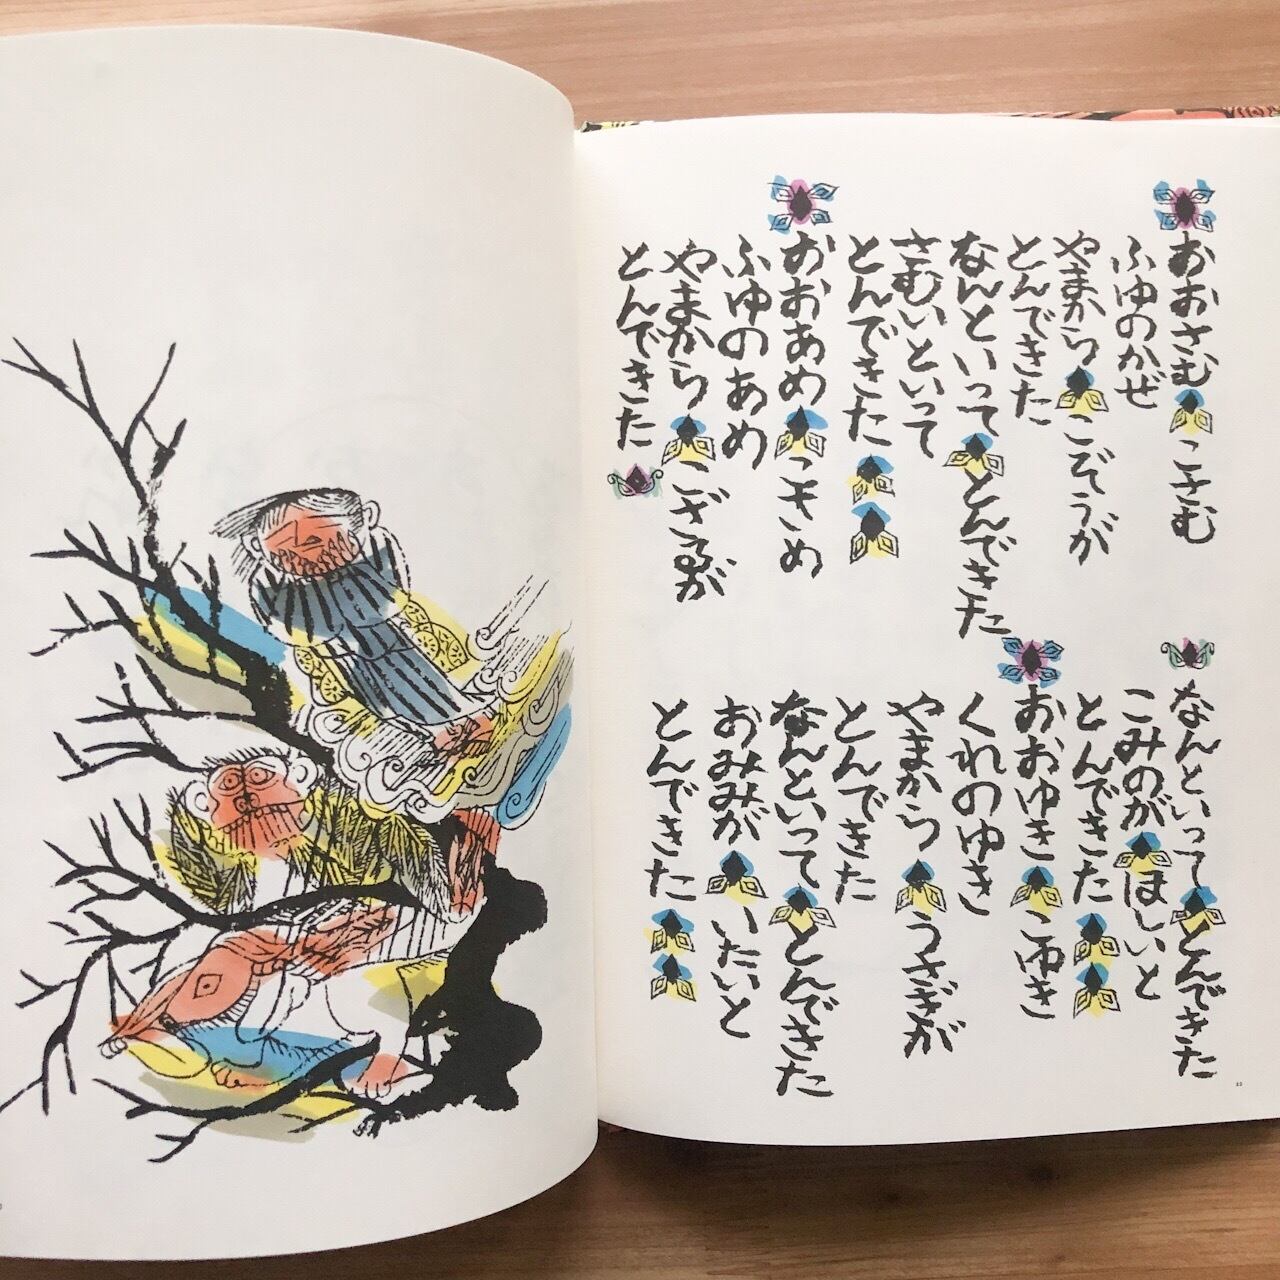 おおさむ こさむ
ふゆのかぜ
やまから こぞうが
とんできた
なんといって とんできた
さむいといって
とんできた
おおあめ こさめ
ふゆのあめ
やまから こざるが
とんできた
なんといって とんできた
こみのが ほしいと
とんできた
おおゆき こゆき
くれのゆき
やまから うさぎが
とんできた
なんといって とんできた
おみみが いたいと
とんできた